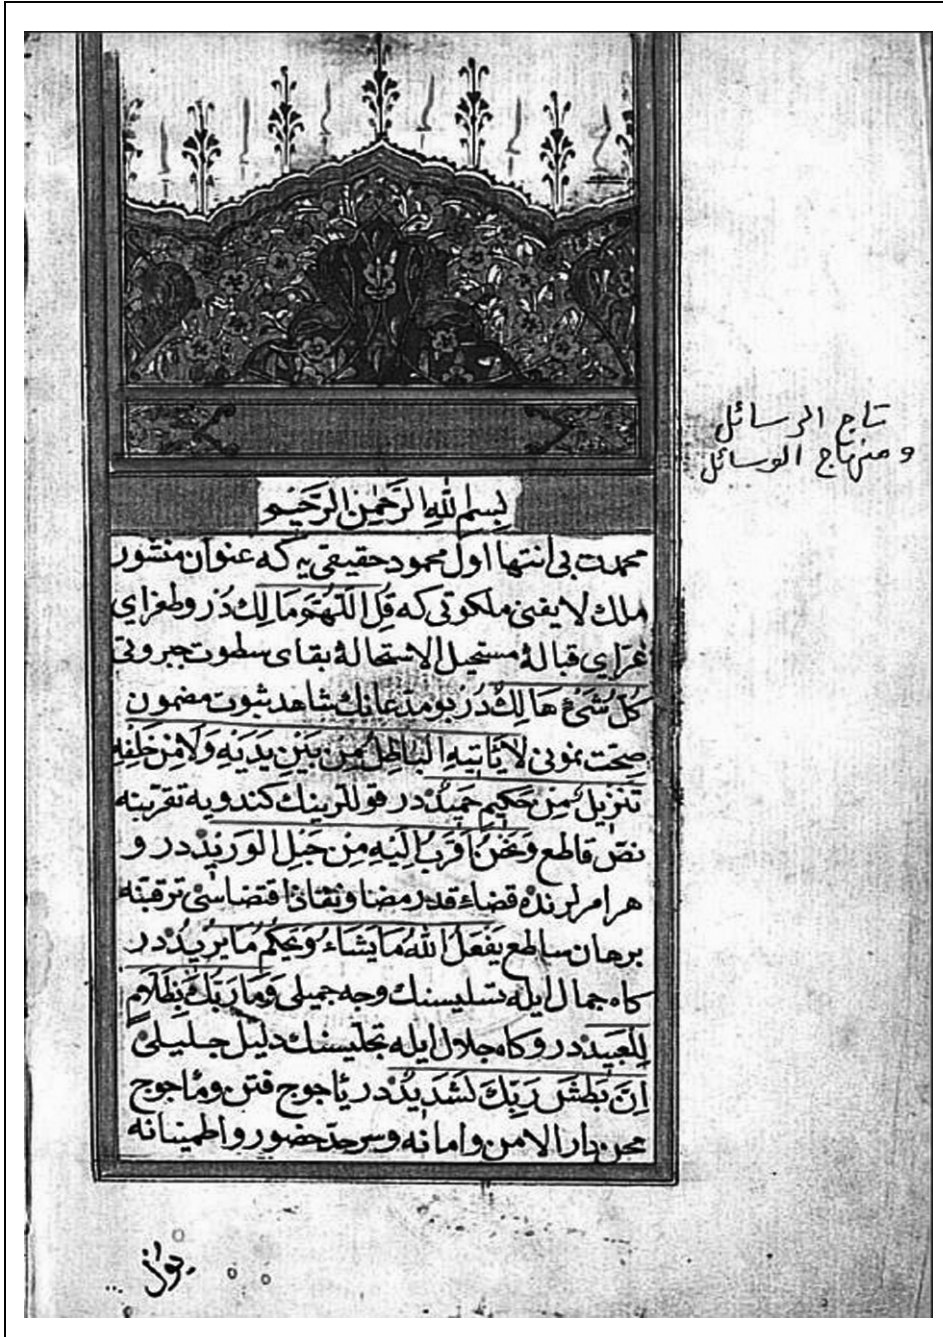 تاج الرسائل
و منهاج الوسائل
بسم الله الرحمن الرحيم
محمدت بی انتها اول محمود حقیقی یه که عنوان منشور
ملك لا یفنی ملکوتی که قُلِ اللّٰهُمَّ مَالِكَ در و طغرای
غرّای قبالهٔ مستحیل الاستحالهٔ بقای سطوت جبروتی
كُلُّ شَیْءٍ هَالِكٌ در بو مدعانك شاهد ثبوت مضمون
صحّت نمونی لَا یَأْتِیهِ الْبَاطِلُ مِن بَیْنِ یَدَیْهِ وَلَا مِنْ خَلْفِهِ
تَنزِیلٌ مِنْ حَكِیمٍ حَمِیدٍ در قوللرینك کندویه تقرّبنه
نصّ قاطع وَنَحْنُ اَقْرَبُ اِلَیْهِ مِنْ حَبْلِ الْوَرِیدِ در و
هر امرلرنده قضاء قدر مضا و نفاذ اقتضاسی ترقبنه
برهان ساطع یَفْعَلُ اللّٰهُ مَا یَشَاءُ وَیَحْكُمُ مَا یُرِیدُ در
کاه جمال ایله تسلیسنك وجه جمیلی وَمَا رَبُّكَ بِظَلَّامٍ
لِلْعَبِیدِ در و کاه جلال ایله تجلیسنك دلیل جلیلی
اِنَّ بَطْشَ رَبِّكَ لَشَدِیدٌ در یأجوج فتن و مأجوج
محن دار الامن و امانه و سرحدّ حضور و اطمینانه